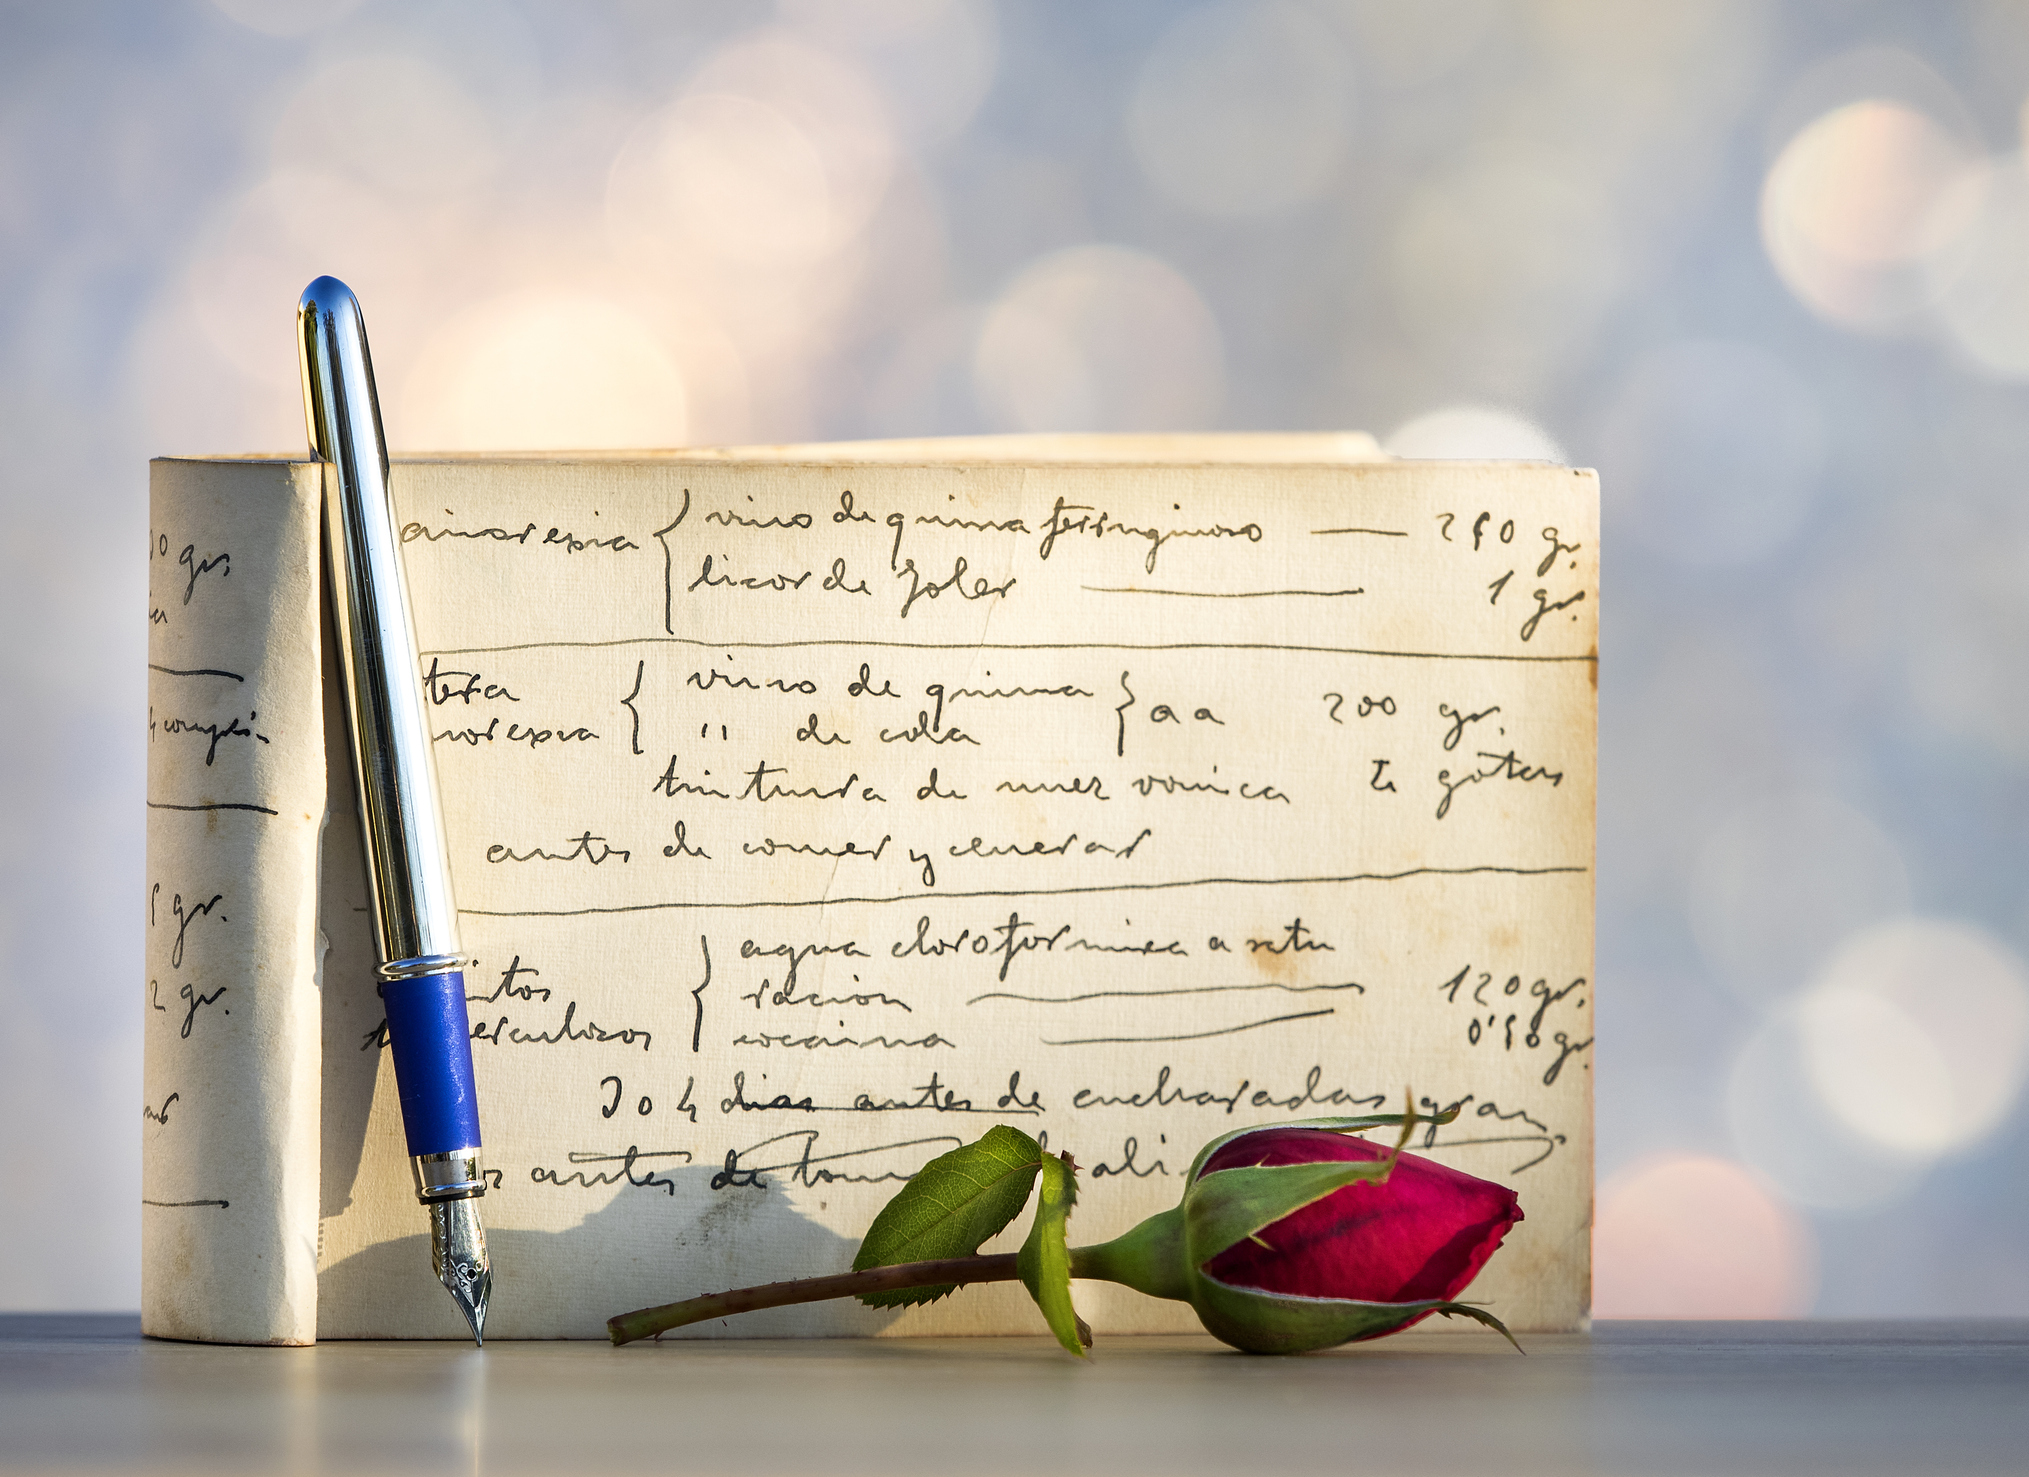 00 gr.
ia
1 gr.
2 gr.
anorexia { vino de quina ferruginoso — 250 gr.
licor de Foler — 1 gr.
tera { vino de quina } aa 200 gr.
norexia " de cola
tintura de nuez vomica gotas
antes de comer y cenar
itos { agua cloroformica a satu
racion — 120 gr.
erculosos cocaina — 0'50 gr.
3 o 4 dias antes de cucharadas gran
antes de ali